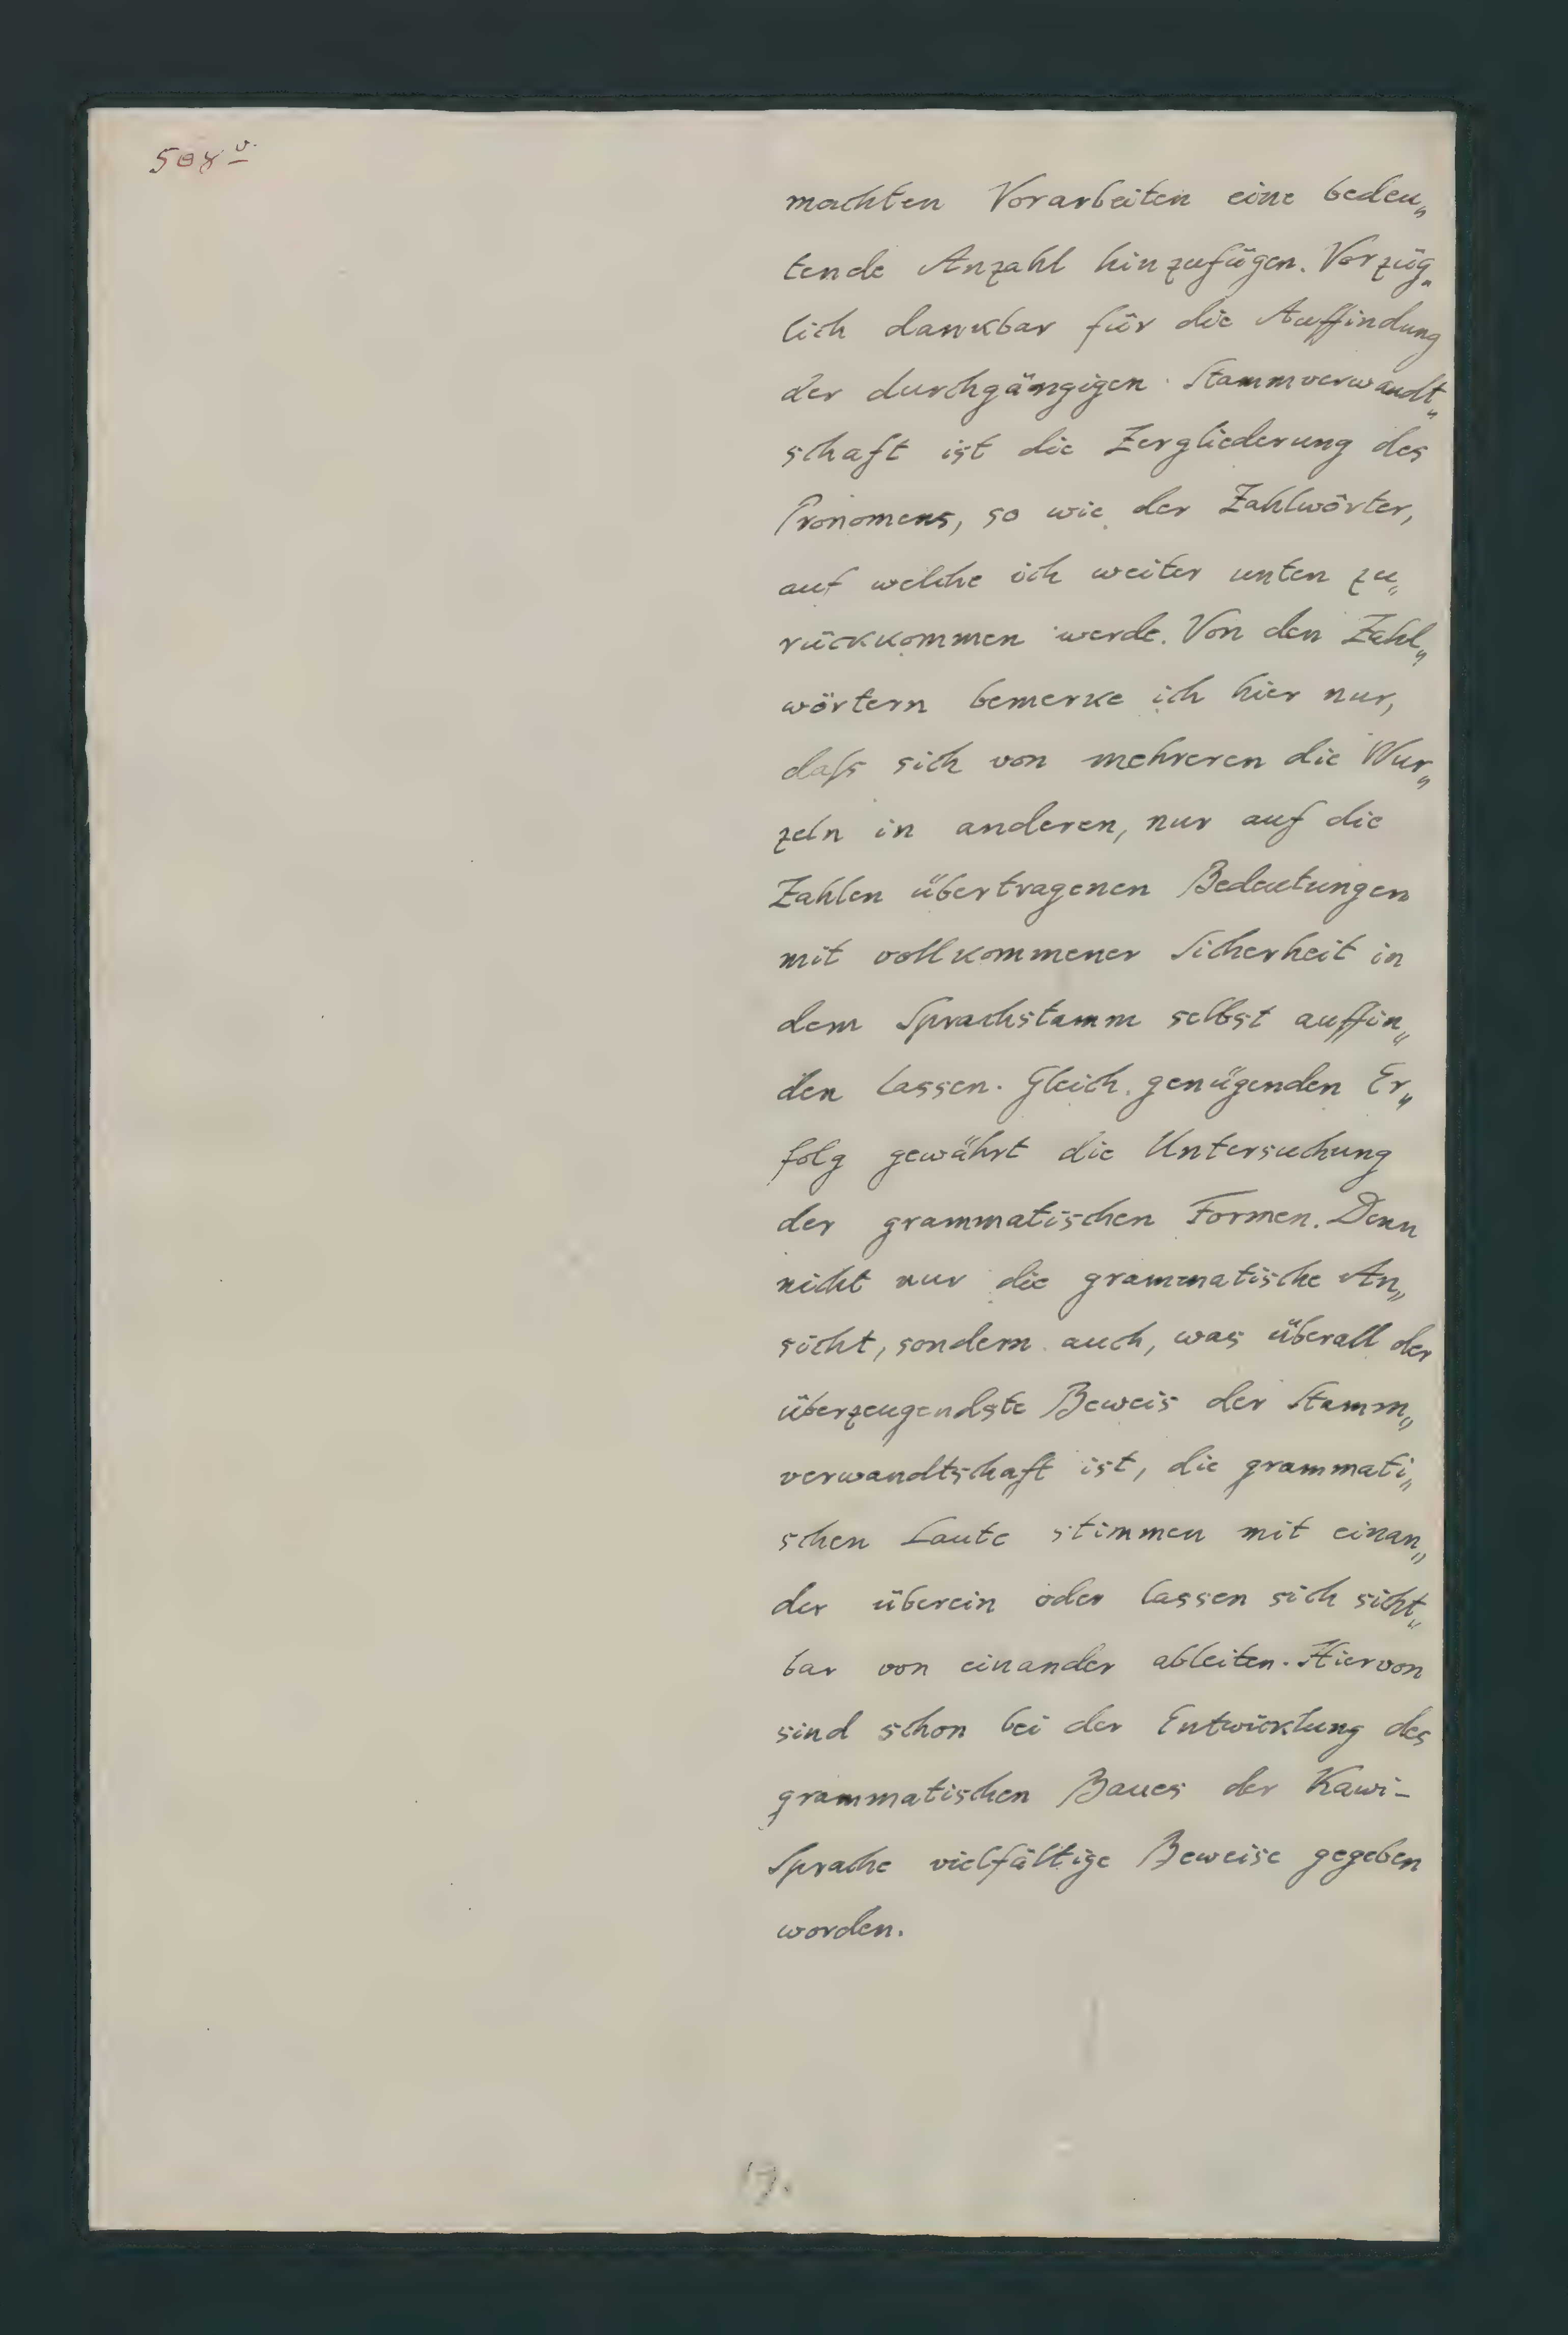 508v.
machten Vorarbeiten eine bedeu„
tende Anzahl hinzufügen. Vorzüg„
lich dankbar für die Auffindung
der durchgängigen Stammverwandt„
schaft ist die Zergliederung des
Pronomens, so wie der Zahlwörter,
auf welche ich weiter unten zu„
rückkommen werde. Von den Zahl„
wörtern bemerke ich hier nur,
daſs sich von mehreren die Wur„
zeln in anderen, nur auf die
Zahlen übertragenen Bedeutungen
mit vollkommener Sicherheit in
dem Sprachstamm selbst auffin„
den lassen. Gleich genügenden Er„
folg gewährt die Untersuchung
der grammatischen Formen. Denn
nicht nur die grammatische An„
sicht, sondern auch, was überall der
überzeugendste Beweis der Stamm„
verwandtschaft ist, die grammati„
schen Laute stimmen mit einan„
der überein oder lassen sich sicht„
bar von einander ableiten. Hiervon
sind schon bei der Entwicklung des
grammatischen Baues der Kawi-
Sprache vielfältige Beweise gegeben
worden.